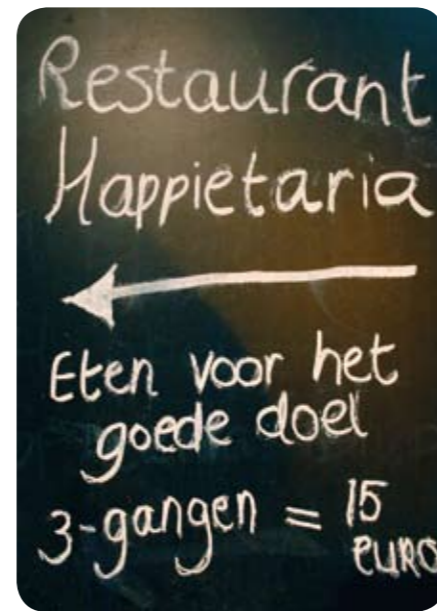 Restaurant
Happietaria
Eten voor het
goede doel
3-gangen = 15
euro